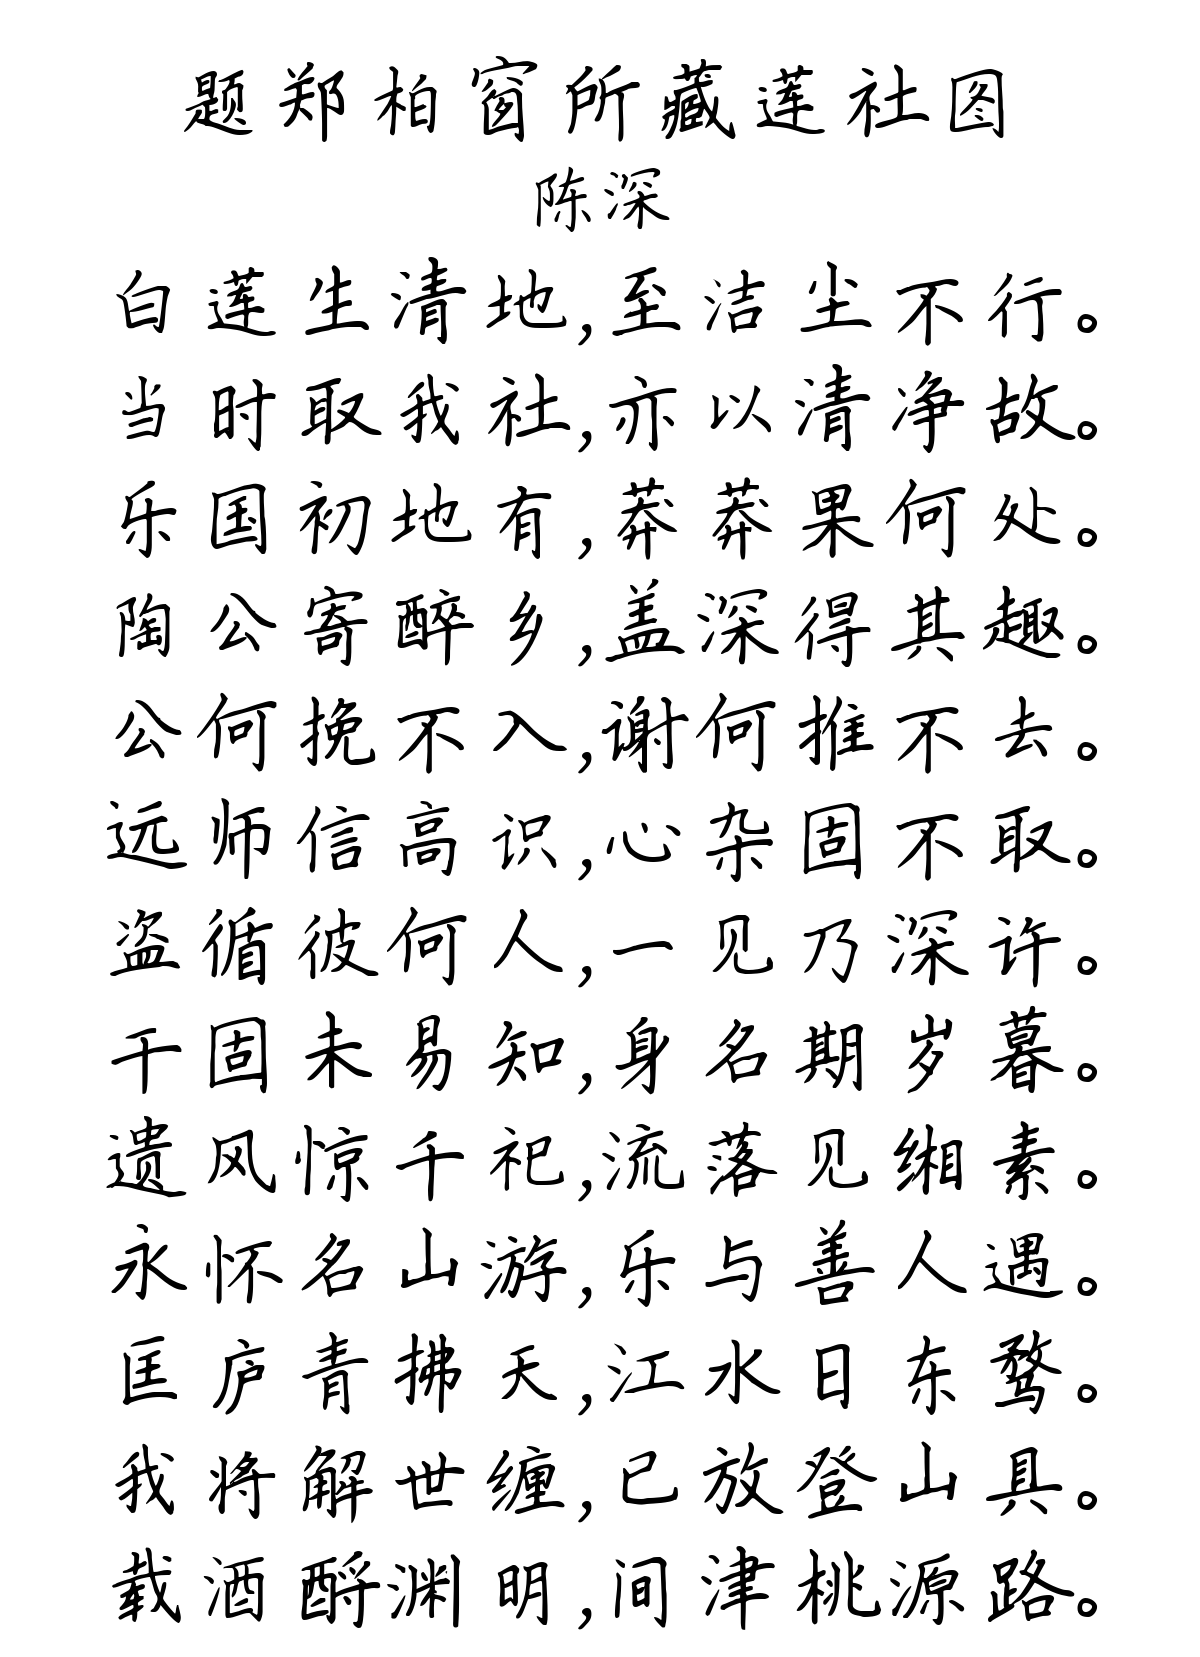 题郑柏窗所藏莲社图
陈深
白莲生清地,至洁尘不行。
当时取我社,亦以清净故。
乐国初地有,莽莽果何处。
陶公寄醉乡,盖深得其趣。
公何挽不入,谢何推不去。
远师信高识,心杂固不取。
盗循彼何人,一见乃深许。
干固未易知,身名期岁暮。
遗风惊千祀,流落见缃素。
永怀名山游,乐与善人遇。
匡庐青拂天,江水日东鹜。
我将解世缠,已放登山具。
载酒酹渊明,间津桃源路。